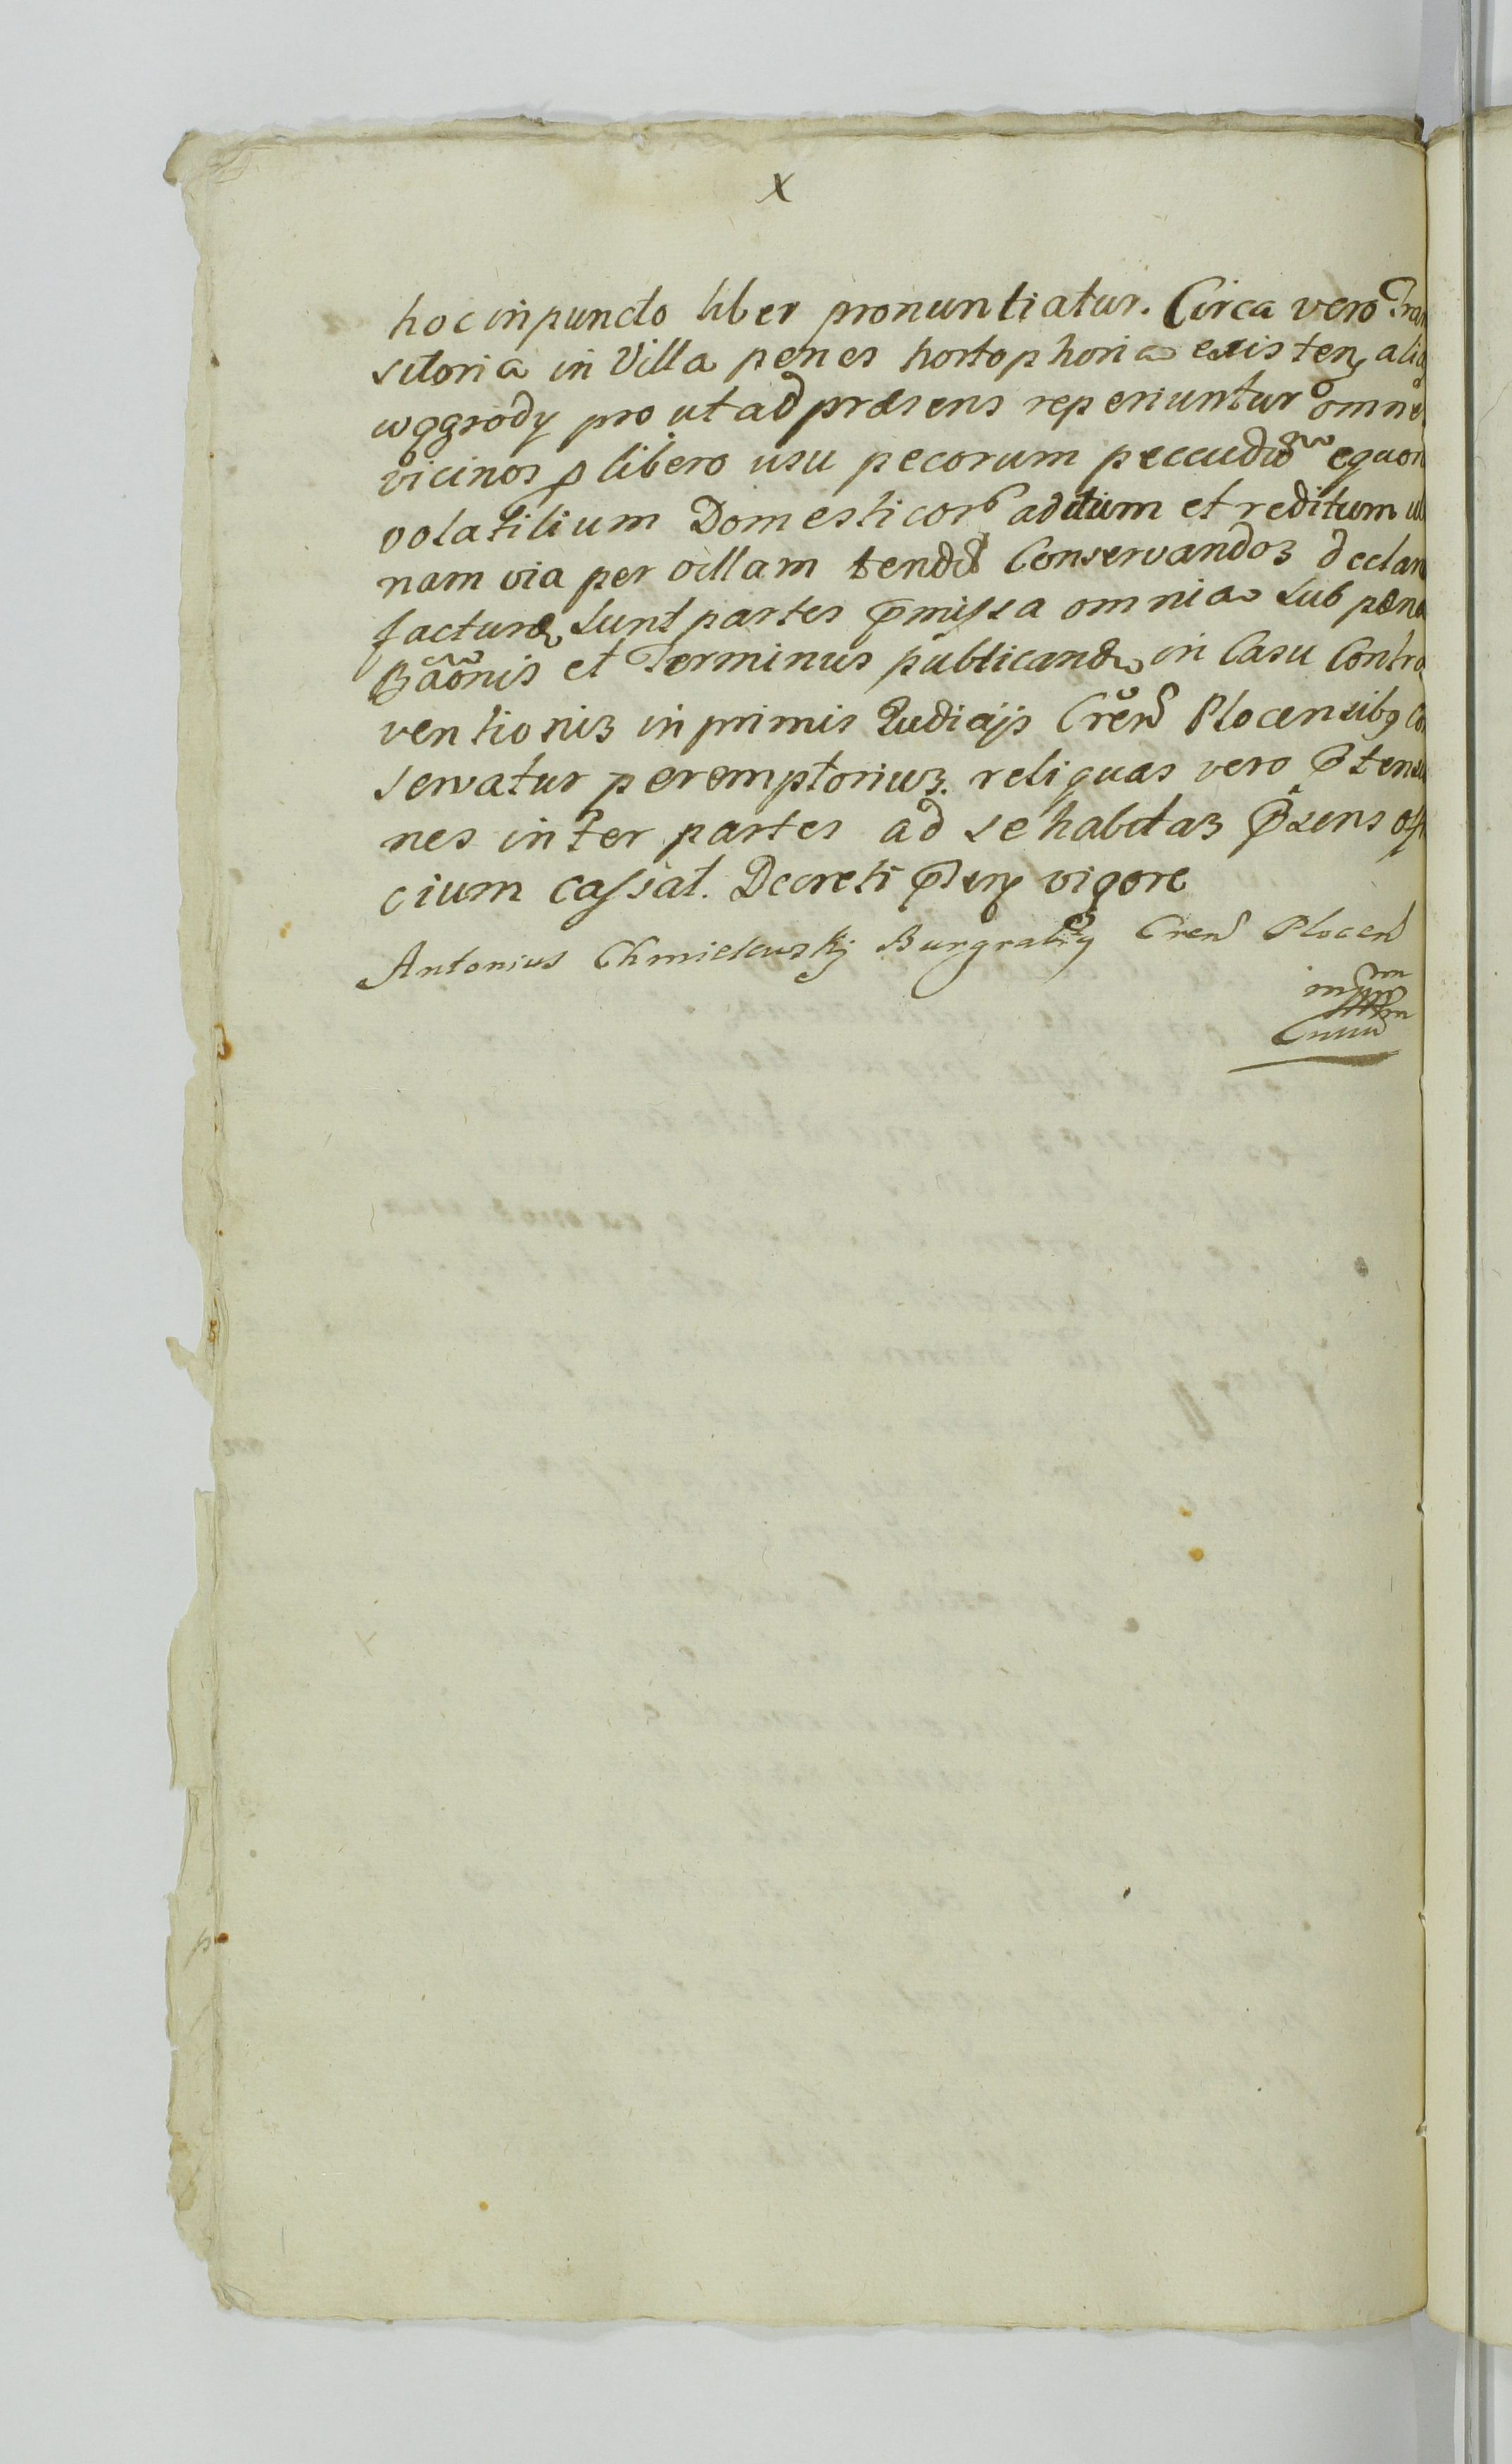 X
hoc in puncto liber pronuntiatur. Circa vero Tran
sitoria in Villa penes hortophoria existen alią
wggrody pro ut ad præsens reperiuntur omne
vicinos p libero usu pecorum peccudū equor
volatilium Domesticor aditum et reditum
nam via per villam tendēd Conservandos declar
facturæ sunt partes p̄missa omnia sub pæna
Bāōnis et Terminus publicandæ in Casu Contra
ventionis in primis Judicijs Cren̄ Plocensibq Co
servatur peremptorius. reliquas vero p̄tensi
nes inter partes ad se habitas p̄sens offi
cium cassat. Decreti p̄sen vigore
Antonius Chmielewskj Burgrabiq Cren̄ Plocen̄